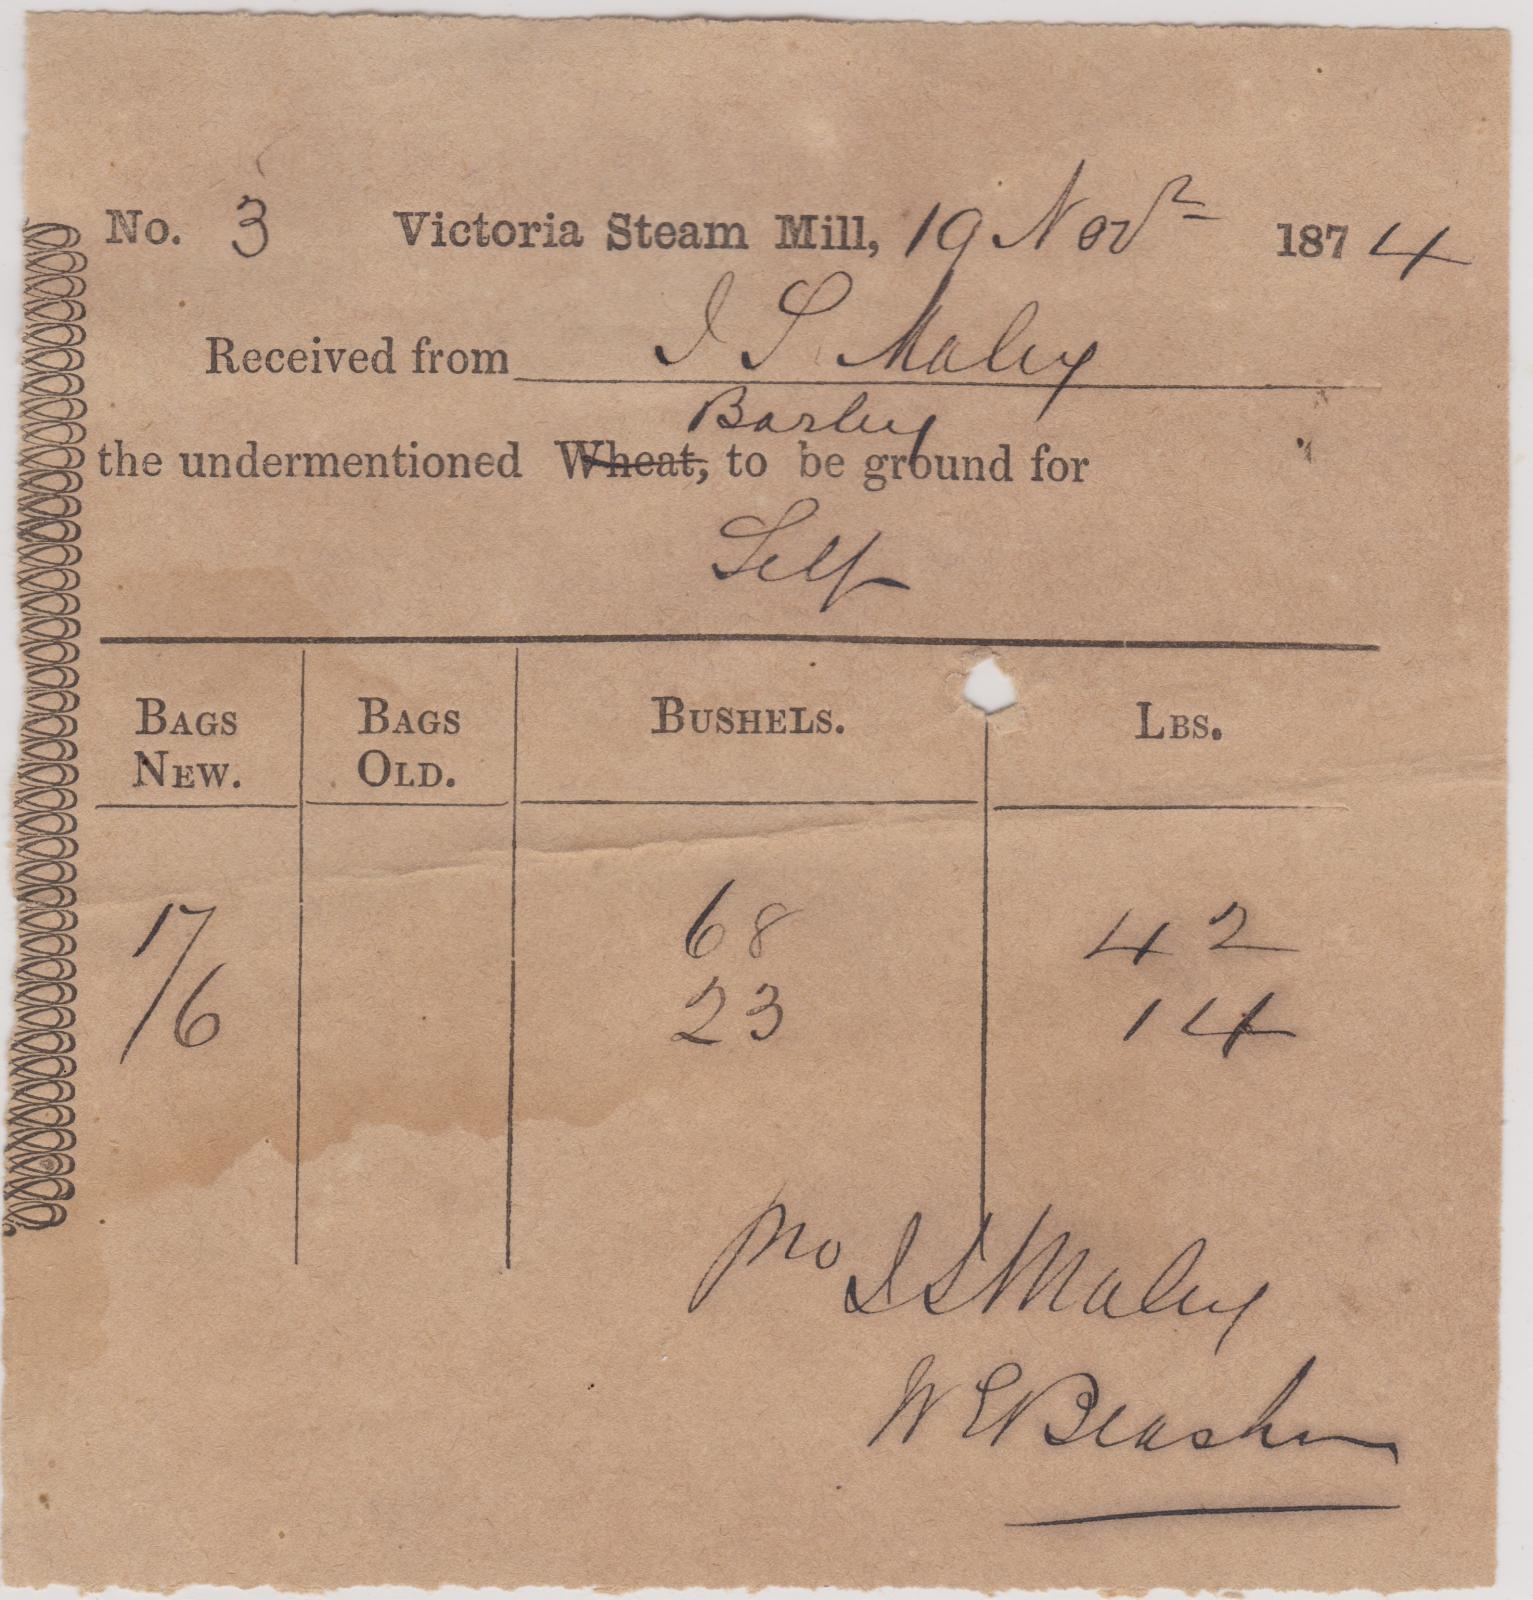 No. 3 Victoria Steam Mill, 19 Novr 1874
Received from J S Maley
Barley
the undermentioned Wheat, to be ground for
Self
BAGS NEW. BAGS OLD. BUSHELS. LBS.
17/ 68 42
/6 23 14
pro J S Maley
W E